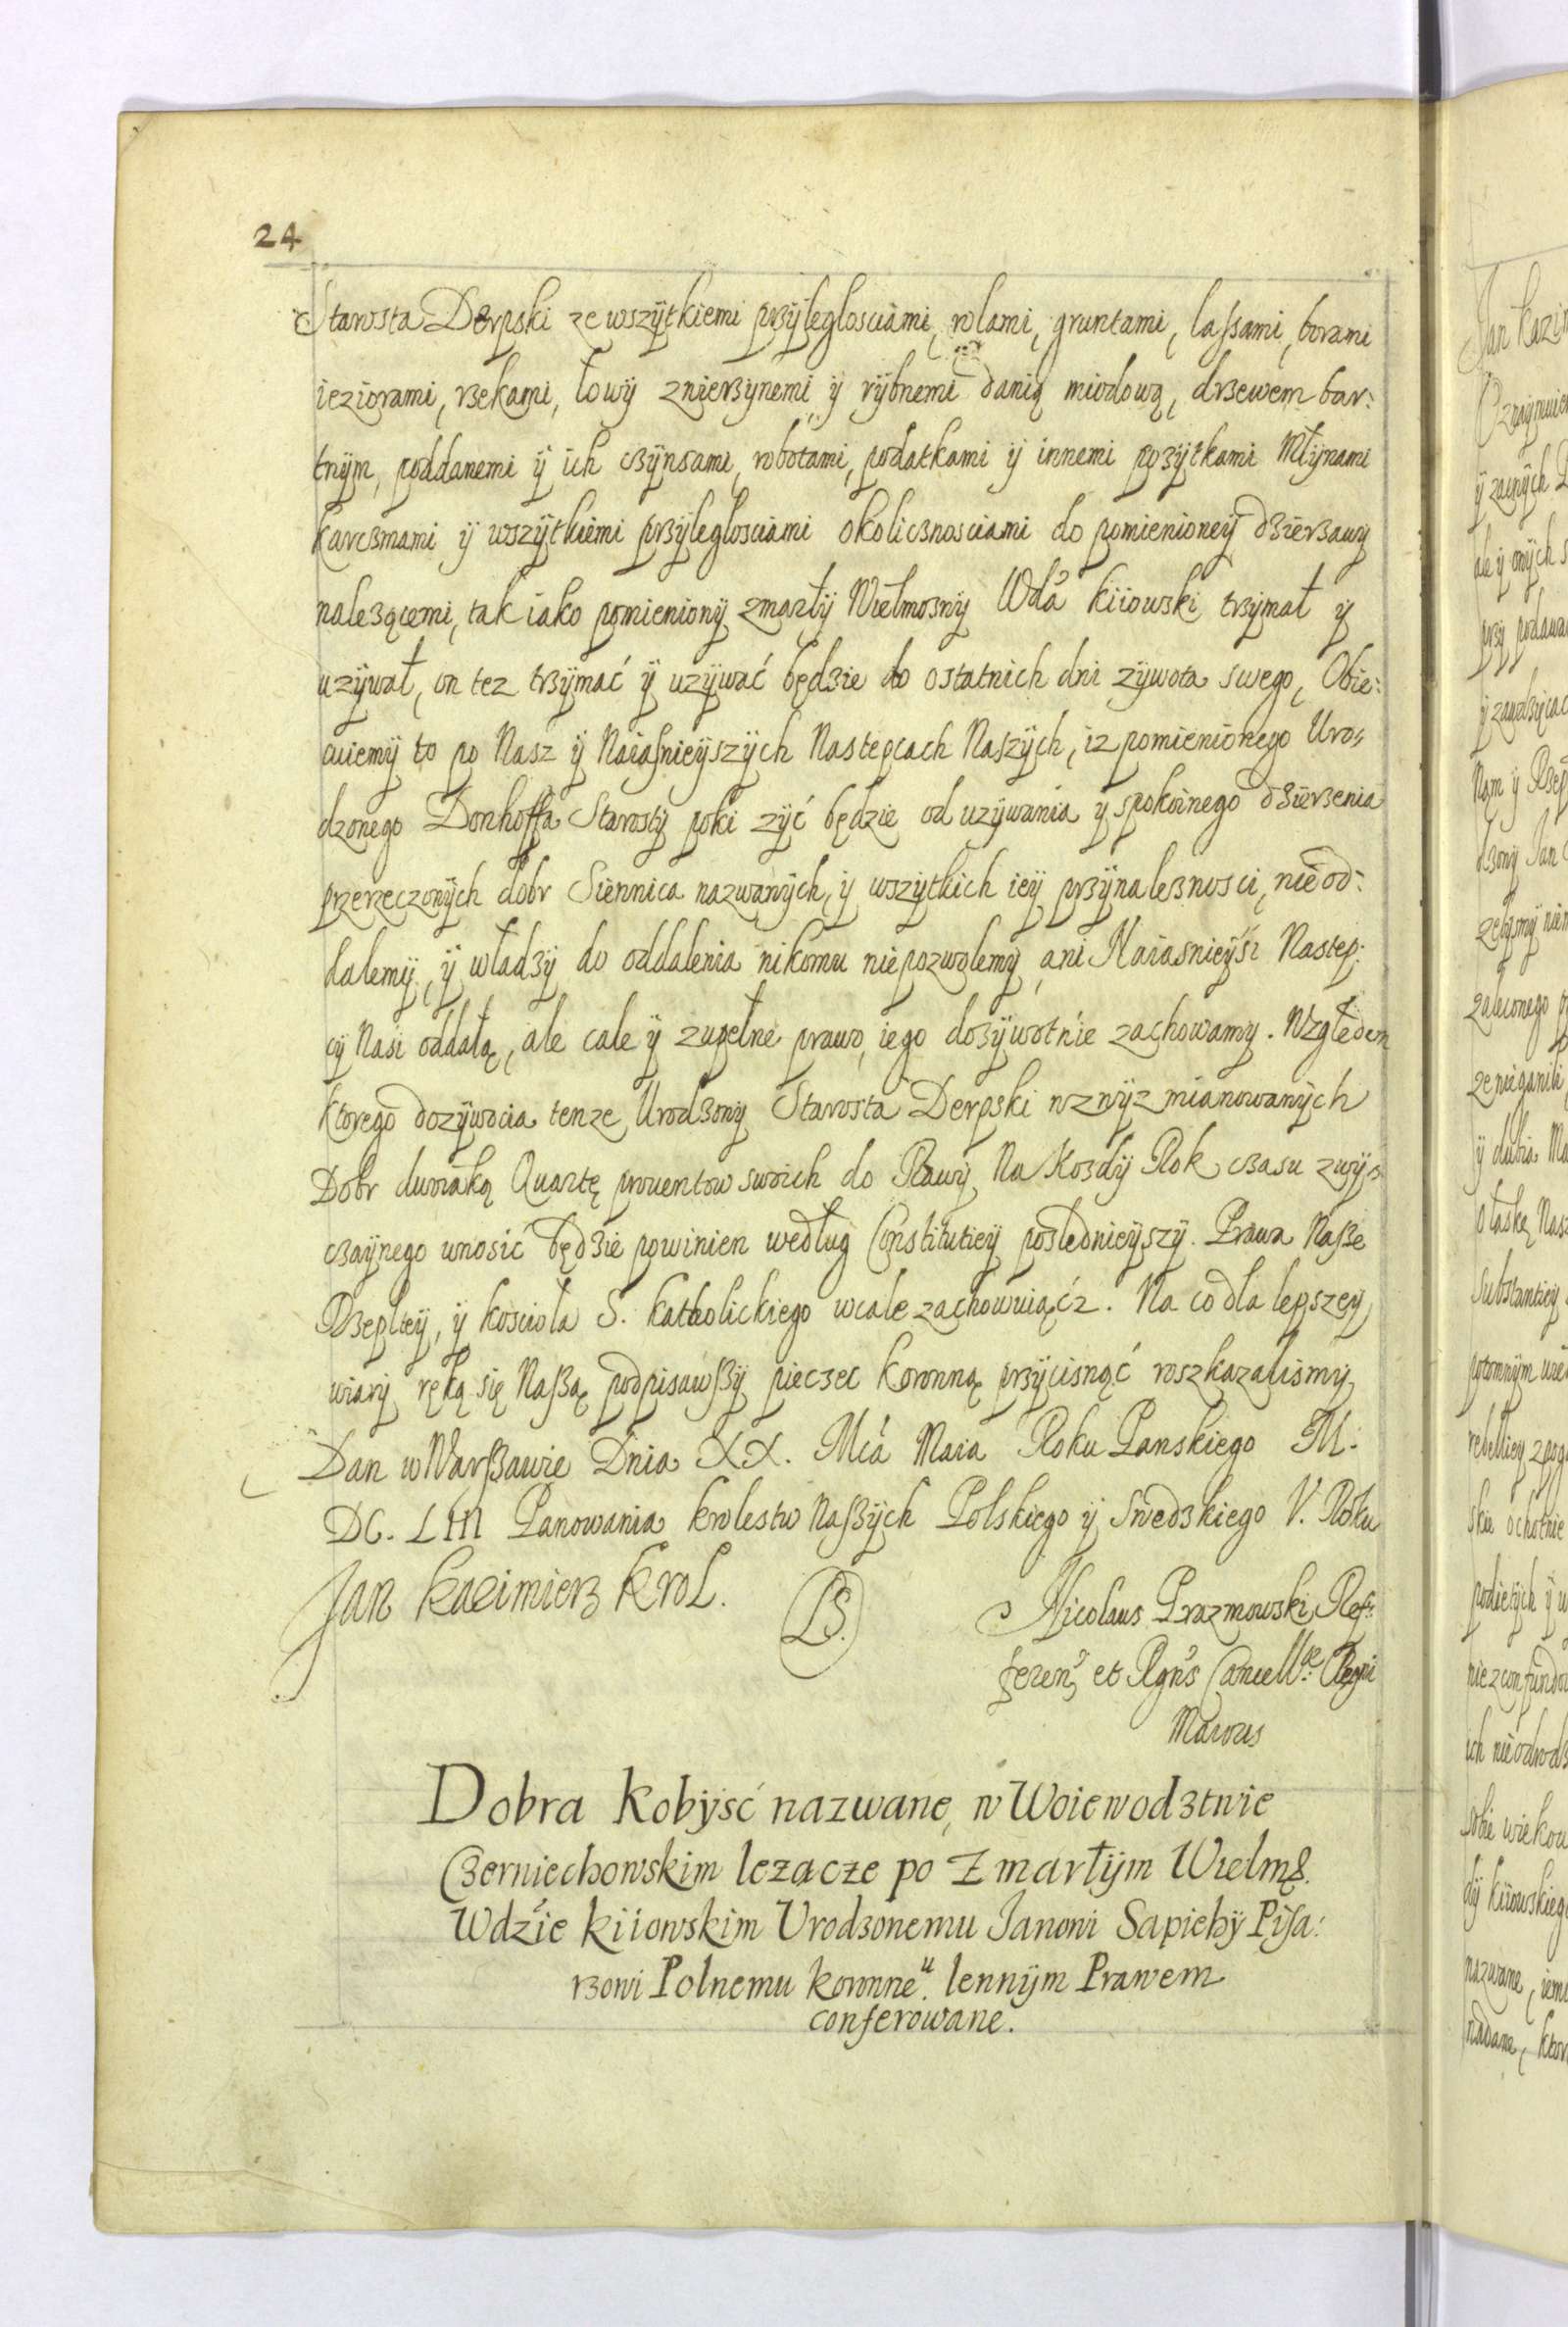 24
Starosta Derpski ze wszÿtkiemi przÿległosciami, rolami, gruntami, lassami, borami
ieziorami, rzekami, łowÿ zwierzÿnemi, ÿ rÿbnemi danią miodową, drzewem bar:
tnÿm, poddanemi ÿ ich czÿnsami, robotami, podatkami ÿ innemi pozÿtkami Młÿnami
karczmami ÿ wszÿtkiemi przÿległosciami okolicznosciami do pomienioneÿ dzierzawÿ
nalezącemi, tak iako pomienionÿ zmarłÿ Wielmoznÿ Wda kiiowski trzÿmał ÿ
uzÿwał, on tez trzÿmać ÿ uzÿwać będzie do ostatnich dni zÿwota swego, Obie:
cuiemÿ to po Nasz ÿ Naiasnieÿszÿch Nastepcach Naszÿch, iz pomienionego Uro,
dzonego Donhoffa Starostÿ poki zÿć będzie od uzÿwania ÿ spokoinego dzierzenia
przerzeczonÿch dobr Siennica nazwanÿch, ÿ wszÿtkich ieÿ przÿnaleznosci, nie od:
dalemÿ, ÿ władzÿ do oddalenia nikomu niepozwolemÿ, ani Naiasnieÿsi Nastep:
cÿ Nasi oddałą, ale cale ÿ zupełne prawo, iego dozÿwotnie zachowamÿ. Względem
ktorego dozÿwocia tenze Urodzonÿ Starosta Derpski wzwÿz mianowanÿch
Dobr dwoiaką Quartę prouentow swoich do Rawÿ Na Kozdÿ Rok czasu zwÿ:
czaÿnego wnosić będzie powinien według Constitutieÿ poslednieÿszÿ. Prawa Nasze
Rzeplteÿ, ÿ kosciola S. katholickiego wcale zachowuiącz. Na co dla lepszeÿ
wiarÿ ręką się Naszą podpisawszÿ pieczec koronną przÿcisnąć roszkazalismÿ
Dan w Warszawie Dnia XX. Mca Maia Roku Panskiego M.
DC. LIII Panowania krolestw Naszÿch Polskiego ÿ Swedzkiego V. Roku
Jan Kazimierz Krol.
LS.
Nicolaus Prazmowski Ref:
feren, et Rgns Cancell. Regni
Maioris
Dobra Kobÿsć nazwane, w Woiewodztwie
Czerniechowskim lezącze po Zmarłÿm Wielmę.
Wdzie kiiowskim Urodzonemu Janowi Sapiehÿ Pisa:
rzowi Polnemu koronne.u lennÿm Prawem
conferowane.